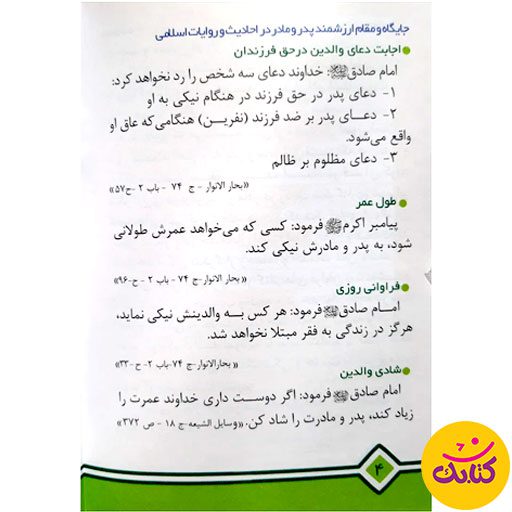 جایگاه و مقام ارزشمند پدر و مادر در احادیث و روایات اسلامی
اجابت دعای والدین در حق فرزندان
امام صادق ﷺ: خداوند دعای سه شخص را رد نخواهد کرد:
۱- دعای پدر در حق فرزند در هنگام نیکی به او
۲- دعـــای پدر بر ضد فرزند (نفریــن) هنگامی که عاق او
واقع می‌شود.
۳- دعای مظلوم بر ظالم
«بحار الانوار - ج ۷۴ - باب ۲ -ح۵۷»
طول عمر
پیامبر اکرم ﷺ فرمود: کسی که می‌خواهد عمرش طولانی
شود، به پدر و مادرش نیکی کند.
«بحار الانوار -ج ۷۴ - باب ۲ - ح-۹۶»
فراوانی روزی
امـام صادق ﷺ فرمود: هر کس بـه والدینش نیکی نماید،
هرگز در زندگی به فقر مبتلا نخواهد شد.
«بحارالانوار-ج ۷۴-باب ۲- ح-۳۳»
شادی والدین
امام صادق ﷺ فرمود: اگر دوســت داری خداوند عمرت را
زیاد کند، پدر و مادرت را شاد کن. «وسایل الشیعه-ج ۱۸ - ص ۳۷۲»
۴
کتابک